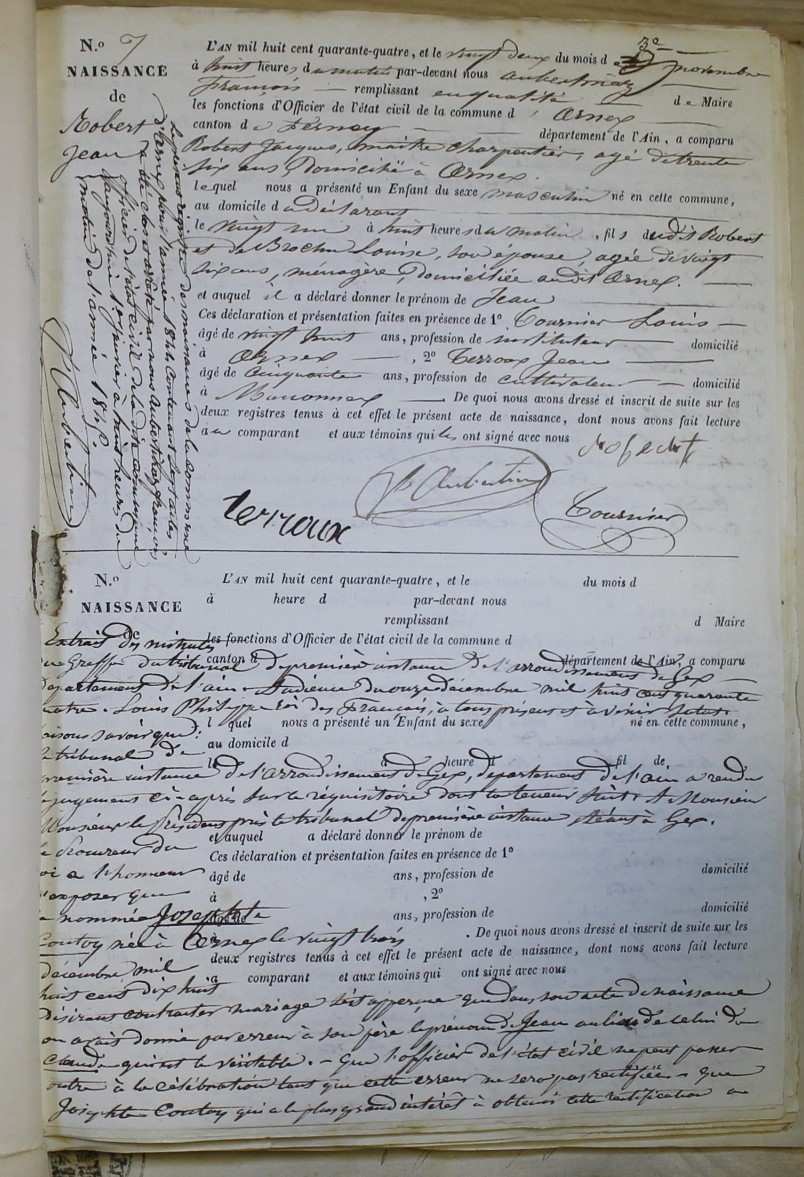 N.º 7
NAISSANCE
de
Robert
Jean
L'AN mil huit cent quarante-quatre, et le vingt deux du mois d e 9bre novembre
à huit heures du matin par-devant nous aubertin
François remplissant en qualité d e Maire
les fonctions d'Officier de l'état civil de la commune d' Ornex
canton d e Ferney département de l'Ain, a comparu
Robert Jacques, maître charpentier, agé de trente
six ans, Domicilié à Ornex.
lequel nous a présenté un Enfant du sexe masculin né en cette commune,
au domicile du déclarant
le vingt un à huit heures du matin, fils dudit Robert
et de Louise, son épouse, agée de vingt
six ans, ménagère, domiciliée au dit Ornex.
et auquel il a déclaré donner le prénom de Jean
Ces déclaration et présentation faites en présence de 1º Tournier Louis
âgé de vingt huit ans, profession de instituteur domicilié
à Ornex, 2º Terroux Jean
âgé de cinquante ans, profession de cultivateur domicilié
à Maconnex De quoi nous avons dressé et inscrit de suite sur les
deux registres tenus à cet effet le présent acte de naissance, dont nous avons fait lecture
au comparant et aux témoins qui les ont signé avec nous
Robert
f Aubertin
Tournier
Terroux
Le présent registre de naissances de la commune
d'Ornex pour l'année 1844 contenant sept actes
a été clos et arrêté par nous Aubertin françois
officier de l'état civil de la dite commune
aujourd'hui 1er janvier à huit heures du
matin de l'année 1845.
f Aubertin
N.º
NAISSANCE
de
L'AN mil huit cent quarante-quatre, et le du mois d
à heure d par-devant nous
remplissant d Maire
les fonctions d'Officier de l'état civil de la commune d
canton d département de l'Ain, a comparu
l quel nous a présenté un Enfant du sexe né en cette commune,
au domicile d
l à heure d fil de
et auquel a déclaré donner le prénom de
Ces déclaration et présentation faites en présence de 1º
âgé de ans, profession de domicilié
à , 2º
âgé de ans, profession de domicilié
. De quoi nous avons dressé et inscrit de suite sur les
deux registres tenus à cet effet le présent acte de naissance, dont nous avons fait lecture
a comparant et aux témoins qui ont signé avec nous
Extrait des minutes
au Greffe du tribunal de première instance de l'arrondissement de Gex
département de l'ain. Audience du onze décembre mil huit cent quarante
quatre. Louis Philippe Roi des Français, à tous présents et à venir Salut.
faisons savoir que:
le tribunal de
première instance de l'arrondissement de Gex, département de l'ain a rendu
le jugement ci-après sur le réquisitoire dont la teneur suit: A Monsieur
Monsieur le Président près le tribunal de première instance séant à Gex.
Le Procureur du
roi a l'honneur
d'exposer que
la nommée Josephte
Coutoy née à Ornex le vingt trois
décembre mil
huit cent dix huit
désirant contracter mariage s'est apperçue que dans son acte de naissance
on avait donné par erreur à son père le prénom de Jean au lieu de celui de
Claude qui est le véritable. Que l'officier de l'état civil ne peut passer
outre à la célébration tant que cette erreur ne sera pas rectifiée. Que
Josephte Coutoy qui a le plus grand intérêt à obtenir cette rectification a